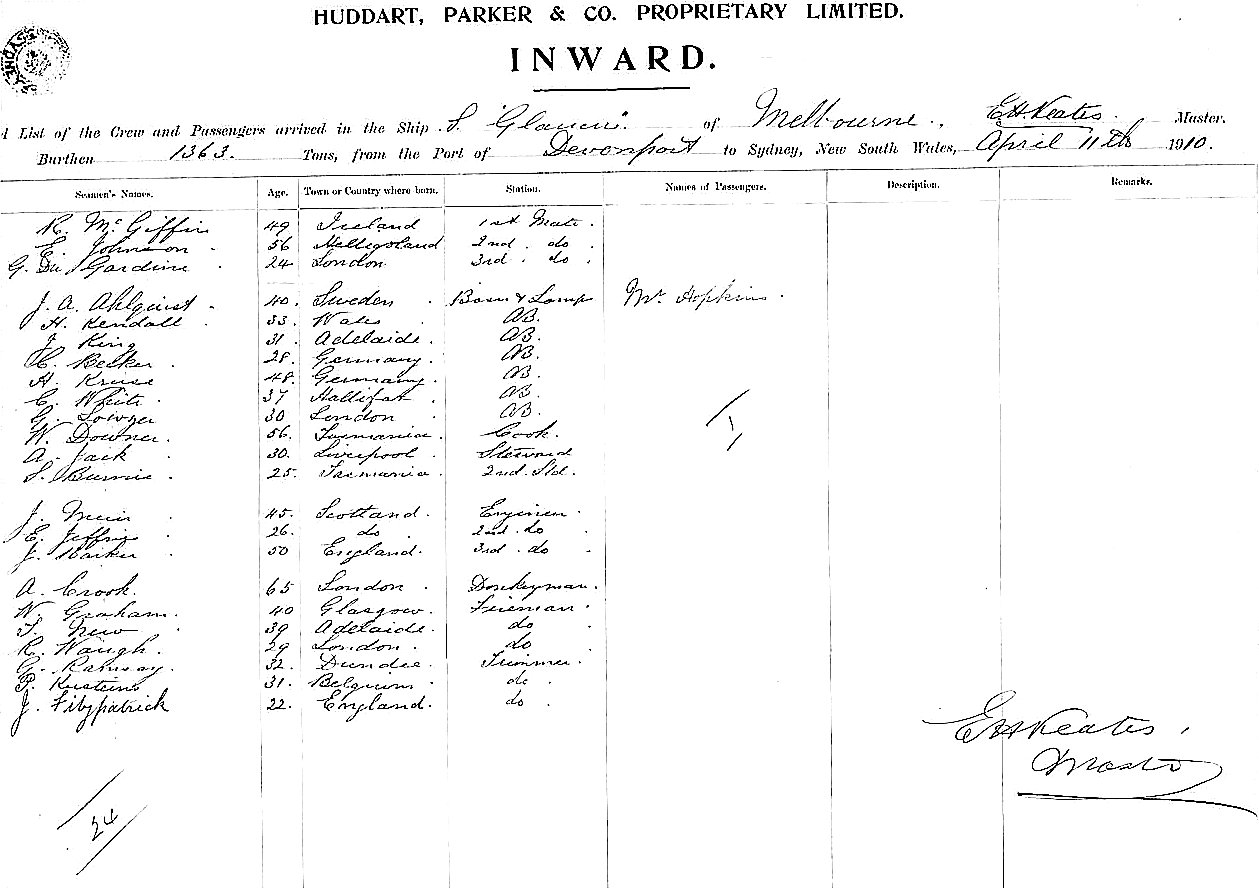 HUDDART, PARKER & CO. PROPRIETARY LIMITED.
INWARD.
d List of the Crew and Passengers arrived in the Ship S. of Melbourne, E H Keates Master.
Burthen 1363. Tons, from the Port of Devonport to Sydney, New South Wales, April 11th 1910.
Seamen's Names. Age. Town or Country where born. Station. Names of Passengers. Description. Remarks.
R. McGiffin 49 Ireland 1st Mate.
E. Johnson 56 Helligoland 2nd. do.
G. Gardine 24 London 3rd. do.
J. A. Ahlquist 40. Sweden Bosn & Lamp Mr. Hopkins.
H. Kendall 33. Wales AB.
J. King 31. Adelaide. AB.
C. Becker 28. Germany. AB.
H. Kruse 48. Germany. AB.
C. White 37 Hallifax AB.
G. 30 London AB.
W. Downer. 56. Tasmania. Cook.
A. Jack 30. Liverpool Steward
S. Burnie 25. Tasmania. 2nd. Std.
J. Muir 45. Scotland. Engineer.
E. Jeffries 26. do 2nd. do
J. 50 England. 3rd. do
A. Crook. 65 London. Donkeyman.
W. Graham. 40 Glasgow. Fireman.
T. New 39 Adelaide. do
R. Waugh. 29 London. do
G. Ramsay. 32. Dundee. Trimmer.
P. 31. Belgium. do.
J. Fitzpatrick 22. England. do.
1
E H Keates,
Master
24